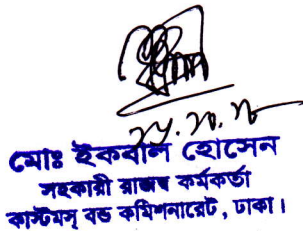 মোঃ ইকবাল হোসেন
সহকারী রাজস্ব কর্মকর্তা
কাস্টমস্ বন্ড কমিশনারেট, ঢাকা।